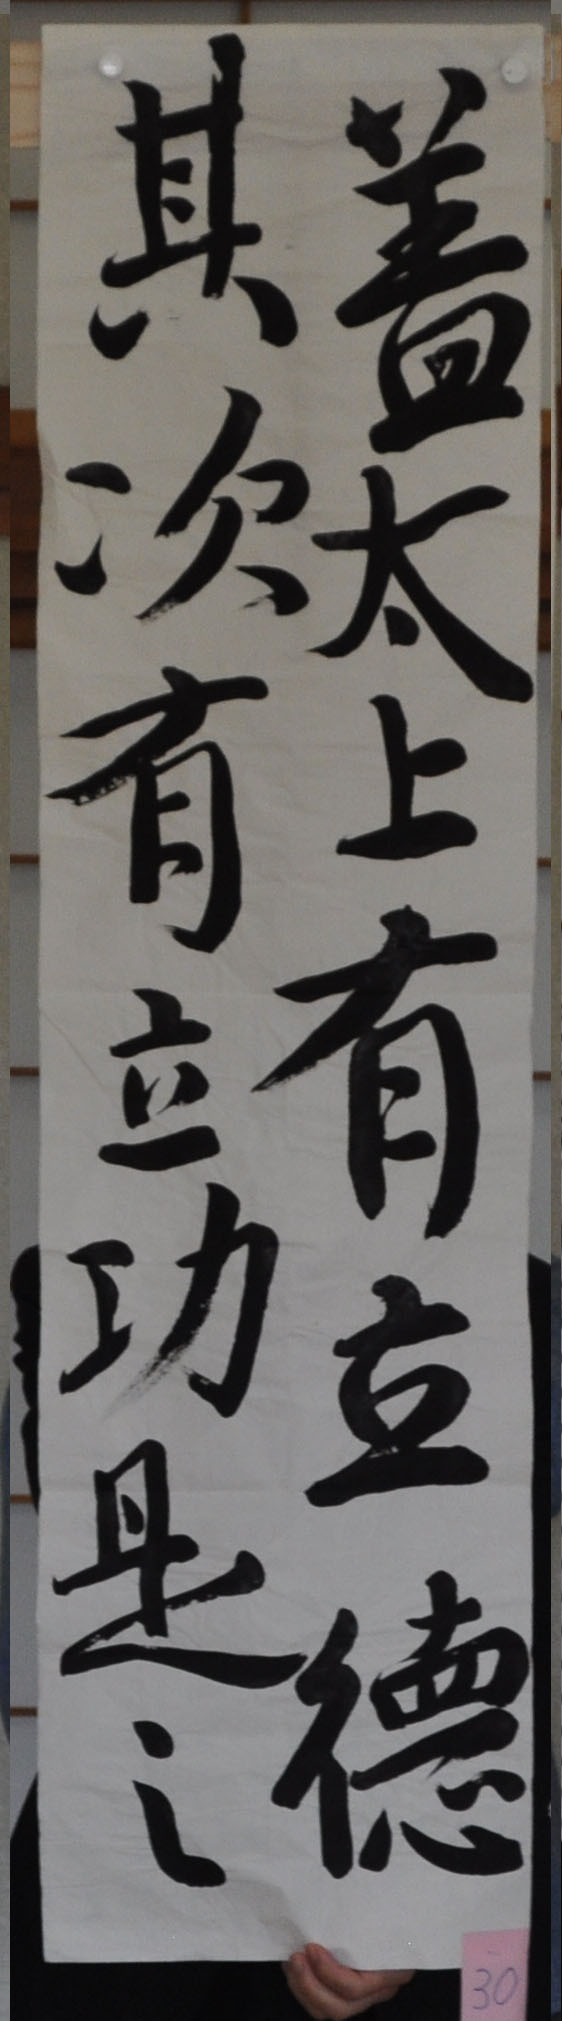 蓋太上有立德
其次有立功是之
30